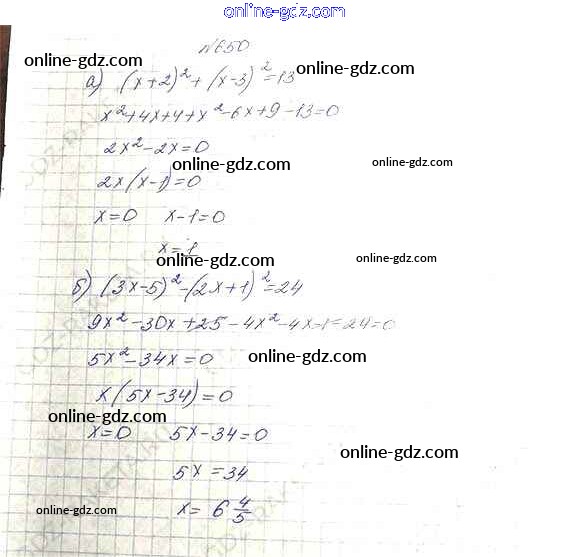 online-gdz.com
№650
а) (x+2)²+(x-3)²=13 online-gdz.com
online-gdz.com
x²+4x+4+x²-6x+9-13=0
2x²-2x=0
online-gdz.com online-gdz.com
2x(x-1)=0
x=0 x-1=0
online-gdz.com
x=1
online-gdz.com online-gdz.com
б) (3x-5)²-(2x+1)²=24
9x²-30x+25-4x²-4x-1-24=0
5x²-34x=0 online-gdz.com
x(5x-34)=0
online-gdz.com
x=0 5x-34=0
online-gdz.com
5x=34
online-gdz.com x=6 4/5